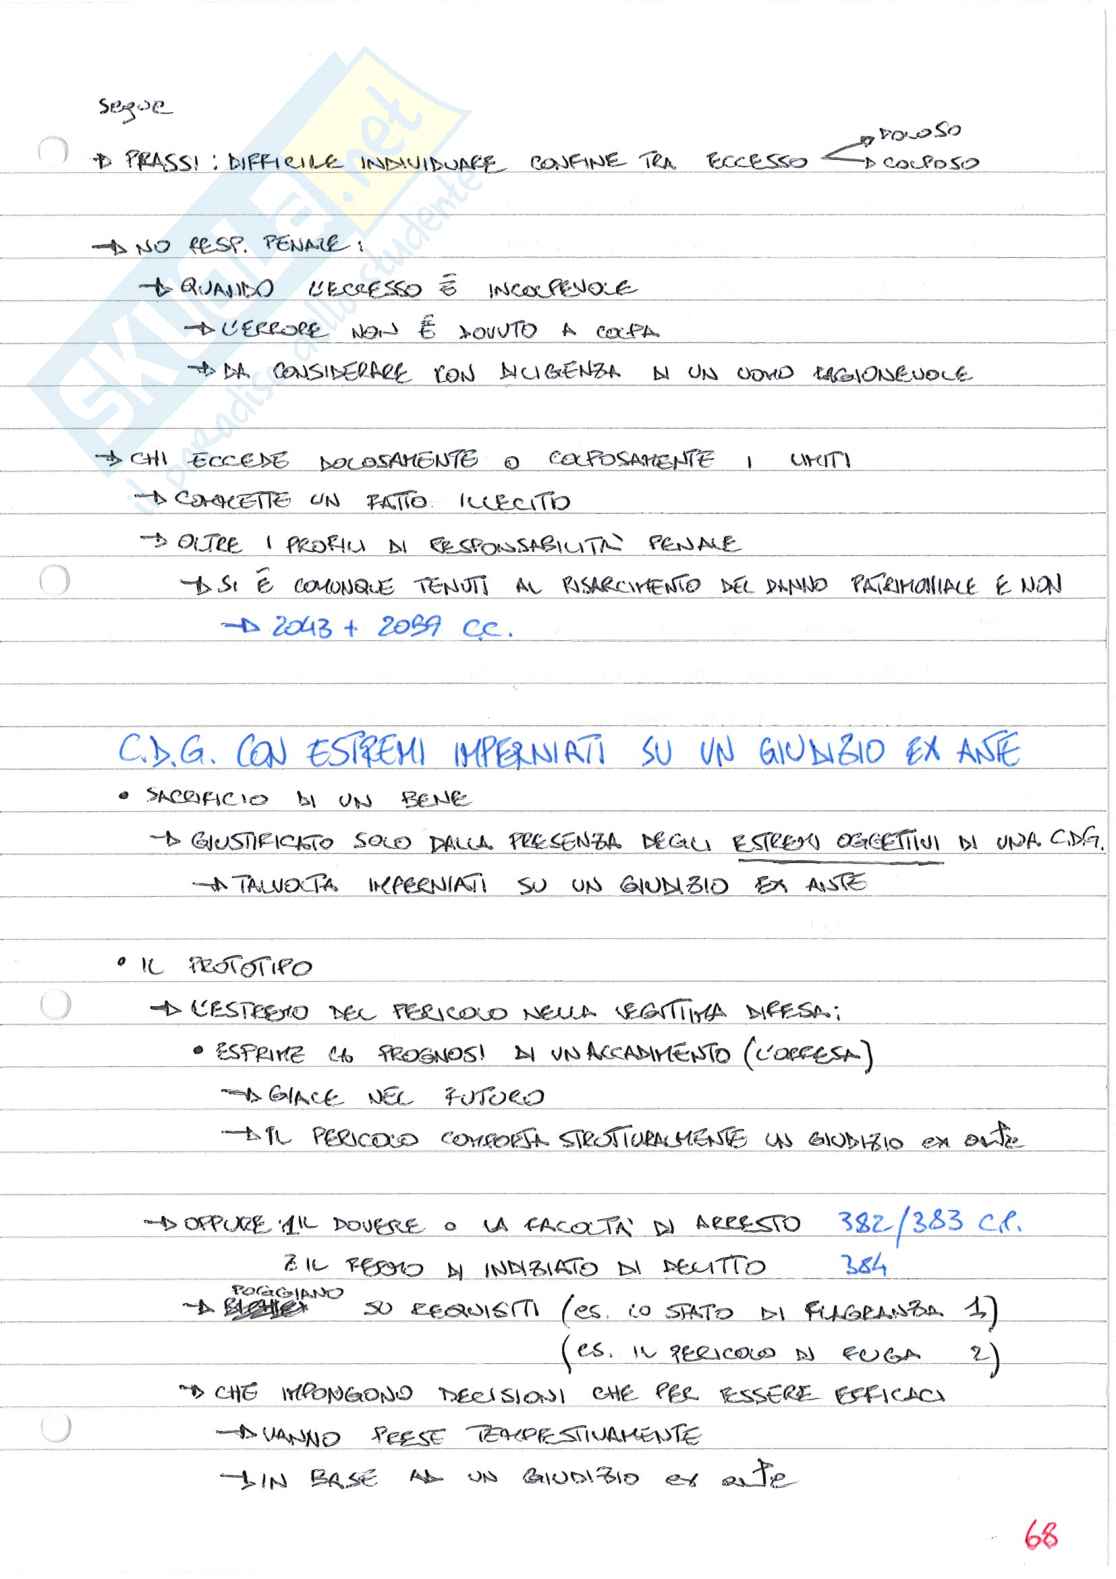 segue
→ PRASSI : DIFFICILE INDIVIDUARE CONFINE TRA ECCESSO → DOLOSO
→ COLPOSO
→ NO RESP. PENALE :
→ QUANDO L'ECCESSO È INCOLPEVOLE
→ L'ERRORE NON È DOVUTO A COLPA
→ DA CONSIDERARE CON DILIGENZA DI UN UOMO RAGIONEVOLE
→ CHI ECCEDE DOLOSAMENTE O COLPOSAMENTE I LIMITI
→ COMMETTE UN FATTO ILLECITO
→ OLTRE I PROFILI DI RESPONSABILITÀ PENALE
→ SI È COMUNQUE TENUTI AL RISARCIMENTO DEL DANNO PATRIMONIALE E NON
→ 2043 + 2059 C.C.
C.D.G. CON ESTREMI IMPERNIATI SU UN GIUDIZIO EX ANTE
• SACRIFICIO DI UN BENE
→ GIUSTIFICATO SOLO DALLA PRESENZA DEGLI ESTREMI OGGETTIVI DI UNA C.D.G.
→ TALVOLTA IMPERNIATI SU UN GIUDIZIO EX ANTE
• IL PROTOTIPO
→ L'ESTREMO DEL PERICOLO NELLA LEGITTIMA DIFESA :
• ESPRIME LA PROGNOSI DI UN ACCADIMENTO (L'OFFESA)
→ GIACE NEL FUTURO
→ IL PERICOLO COMPORTA STRUTTURALMENTE UN GIUDIZIO ex ante
→ OPPURE : 1 IL DOVERE O LA FACOLTÀ DI ARRESTO 382/383 C.P.
2 IL FERMO DI INDIZIATO DI DELITTO 384
→ POGGIANO SU REQUISITI (es. LO STATO DI FLAGRANZA 1)
(es. IL PERICOLO DI FUGA 2)
→ CHE IMPONGONO DECISIONI CHE PER ESSERE EFFICACI
→ VANNO PRESE TEMPESTIVAMENTE
→ IN BASE AD UN GIUDIZIO ex ante
68
SKUOLA.net
il paradiso dello studente